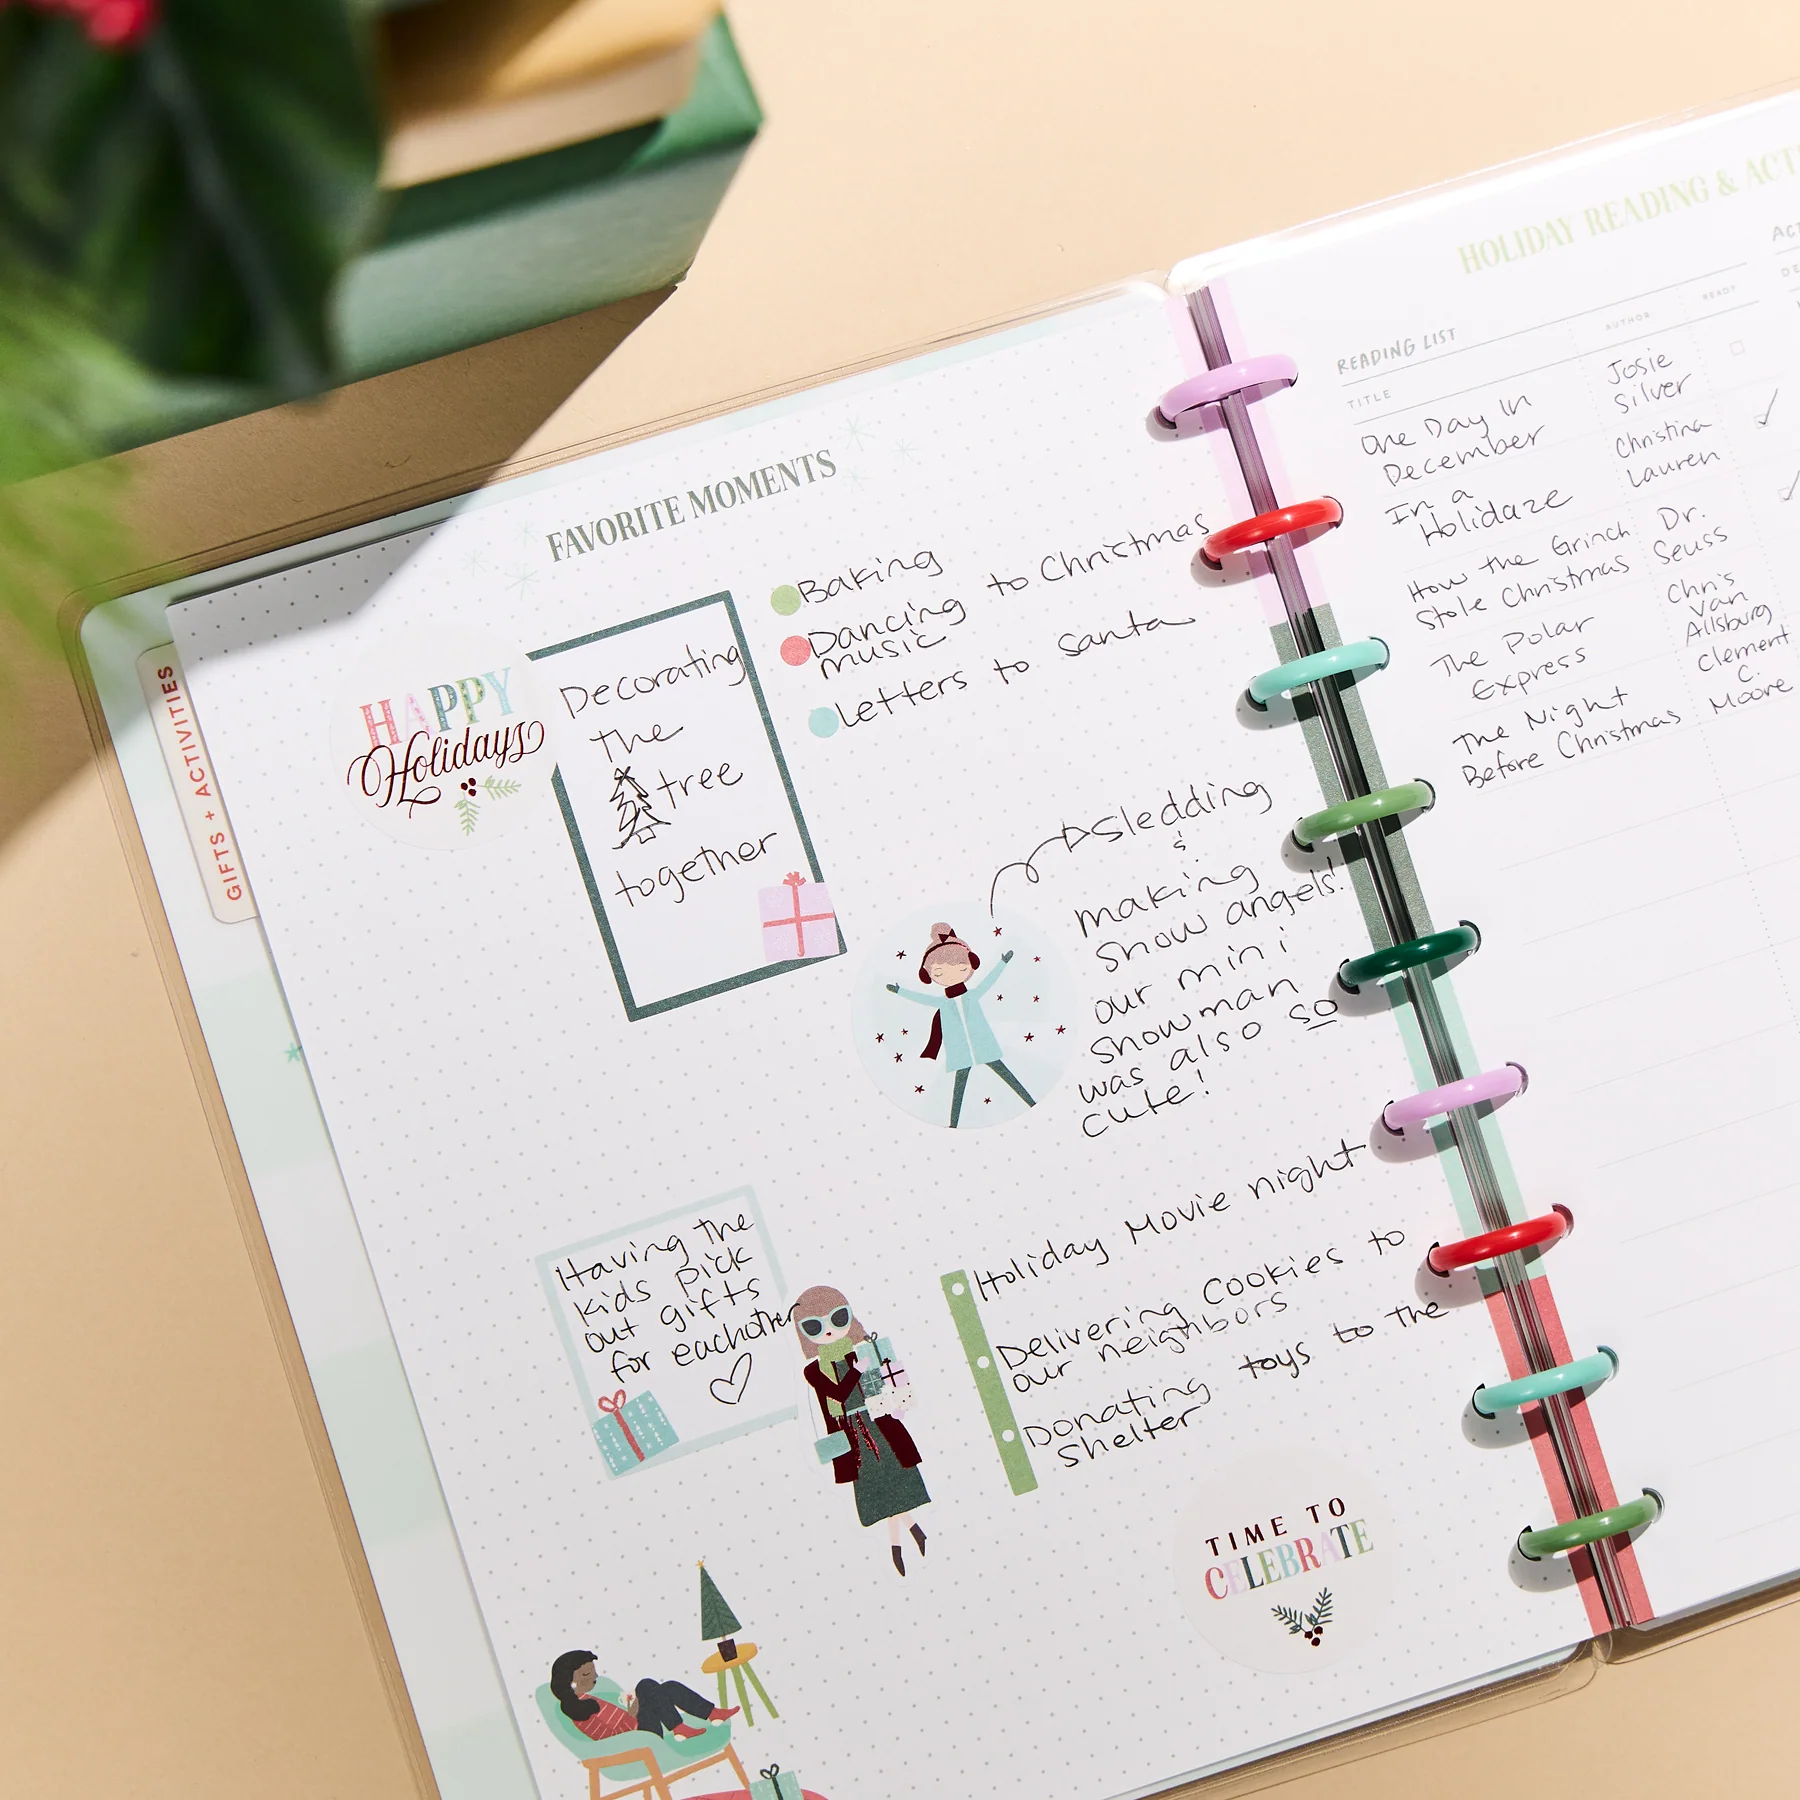 GIFTS + ACTIVITIES
FAVORITE MOMENTS
HAPPY
Holidays
Decorating
the
tree
together
Baking
Dancing to Christmas
music
Letters to santa
Sledding
&
making
snow angels!
our mini
snowman
was also so
cute!
Having the
kids pick
out gifts
for eachother
Holiday Movie night
Delivering Cookies to
our neighbors
Donating toys to the
Shelter
TIME TO
CELEBRATE
HOLIDAY READING &
READING LIST
TITLE
AUTHOR
READ?
One Day In
December
Josie
Silver
In a
Holidaze
Christina
Lauren
How the Grinch
Stole Christmas
Dr.
Seuss
The Polar
Express
Chris
Van
Allsburg
The Night
Before Christmas
Clement
C.
Moore